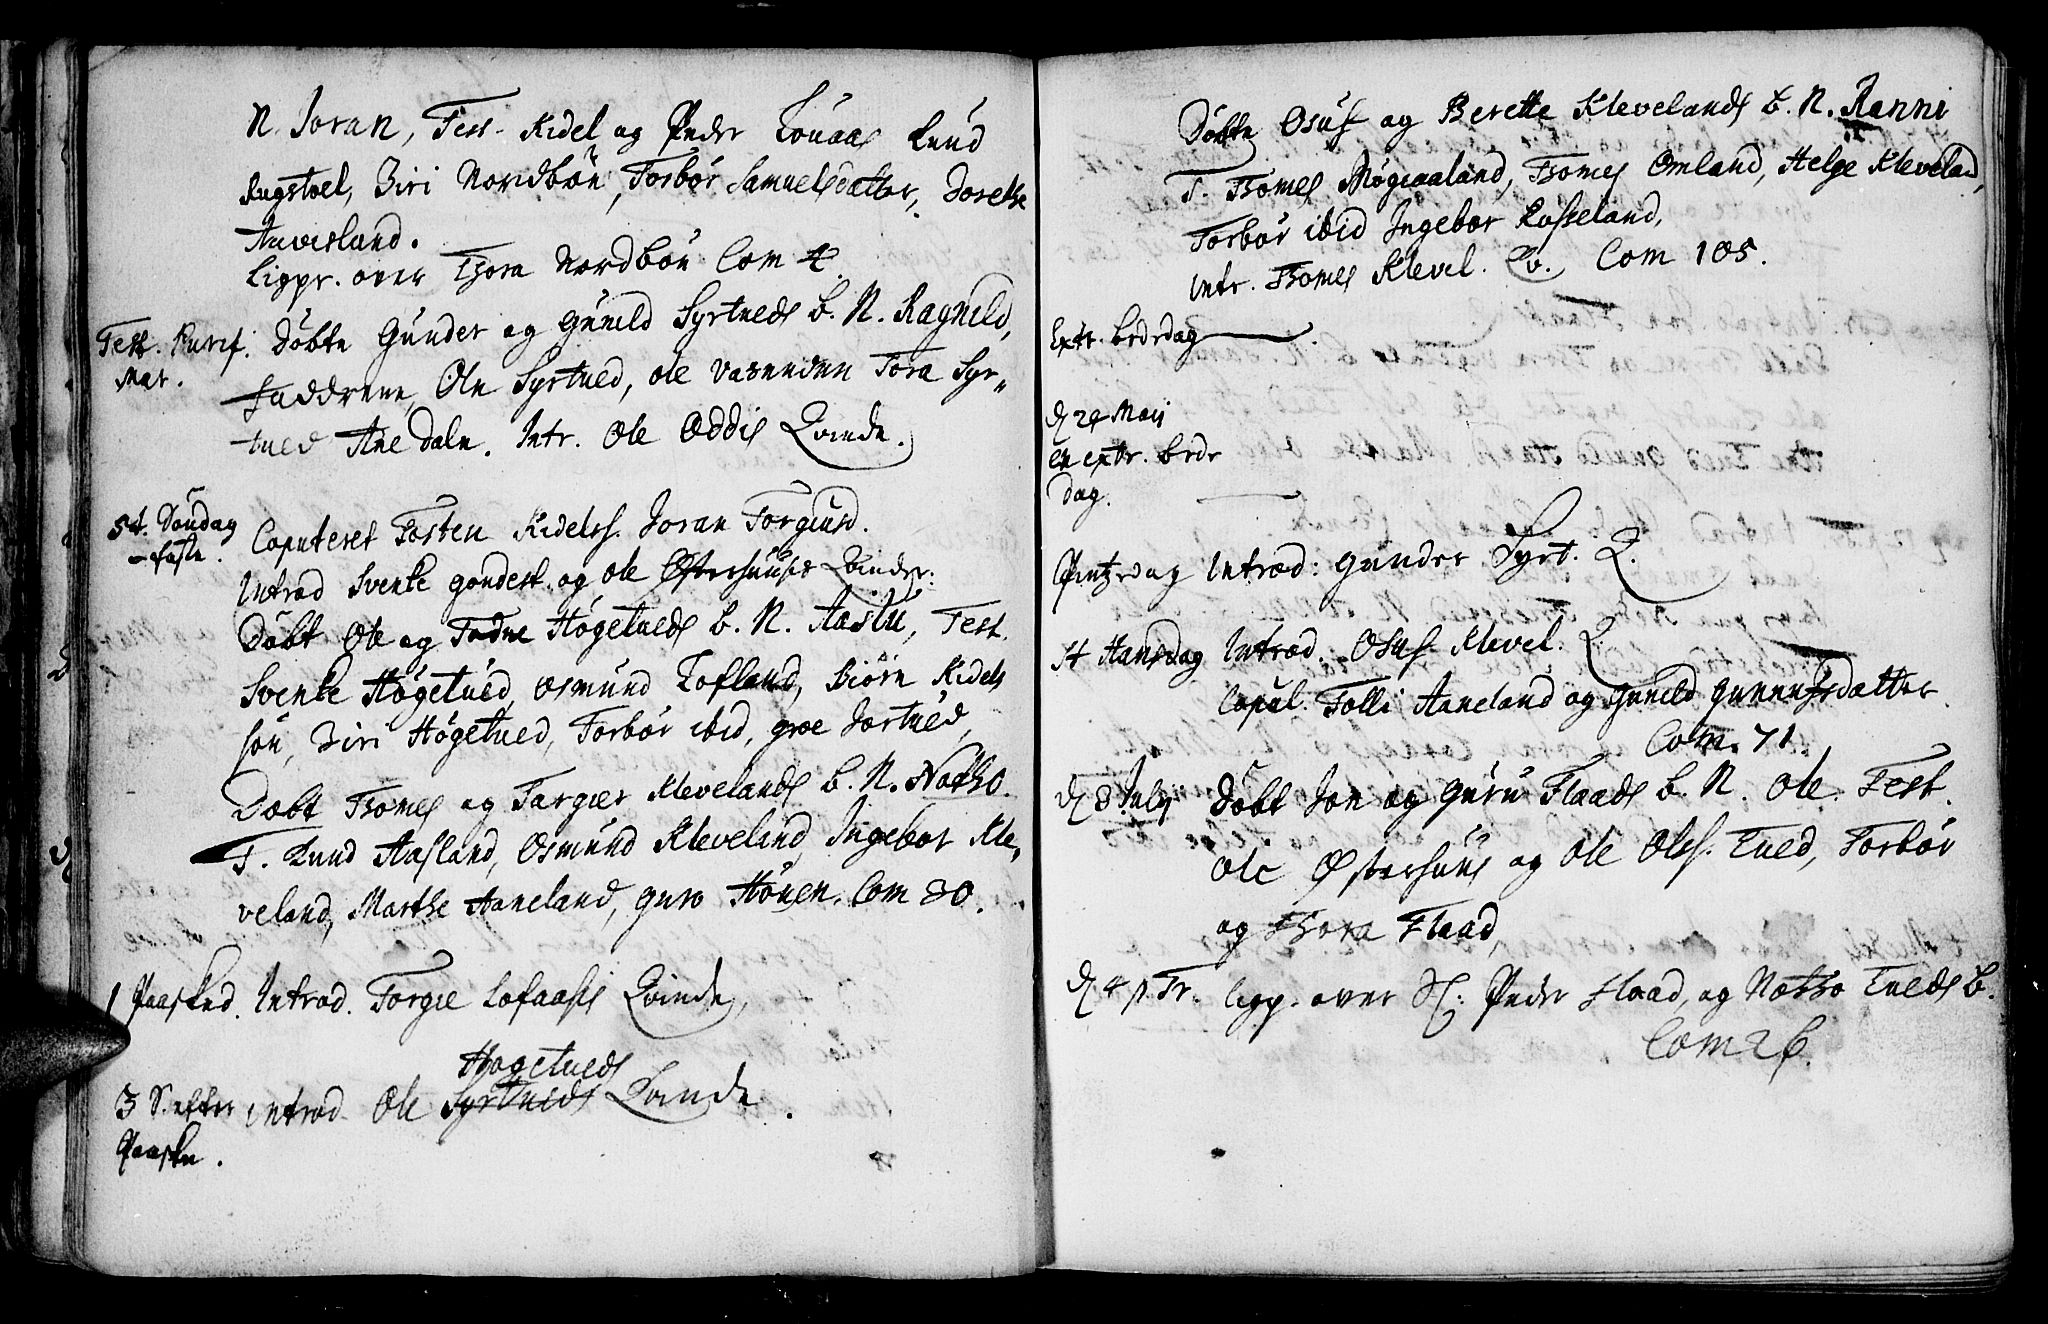 N. Joran, Test. Kidel og Peder Touaas Knud
Rugstoel, Siri Nordbøn, Torbør Samuelsdatter, Dorethe
Auesland.
Ligpr. over Thora Nordbøn Com 4.
Fest. Purif. Døbte Gunder og Gunild Syrtueds b. N. Ragnild,
Mar. Faddrene, Ole Syrtued, ole Vasenden Tora Syr„
tued Ane Dale. Intr. Ole Oddis Qvinde.
5t. Søndag Copuleret Tosten Kidelss. Joran Torgiusd.
faste. Introd Svenke gondest. og ole Østerhuuses Qvinder.
Døbt Ole og Todne Høgetueds b. N. Aaslu, Test.
Svenke Høgetued, osmund Lofland, Biørn Kidels
søn, Siri Høgetued, Torbør ibid, groe Jortued,
Døbt Thomes og Targier Klevelands b. N. Notho.
T. Knud Aasland, Osmund Kleveland, Ingebor Kle„
veland, Marthe Aaneland, guro Høyen. Com 30.
1 Paasked. Introd. Torgie Lofaases Qvinde,
Høgetueds
3 S. efter introd. Ole Syrtueds Qvinde.
Paaske.
Døbte Osuf og Berette Klevelands b. N. Ranni
T. Thomes Møgraaland, Thomes Omland, Helge Kleveland,
Torbør ibid Ingebor Rosseland,
intr. Thomes Klevel. Qv. Com 105.
Extr. bededag
d 24 Maij
en extr. bede
dag.
Pintzedag Introd: gunder Syrt. Q.
St Hansdag Introd. Osuf Klevel. Q.
Copul. Tolli Aaneland og Gunild Gunnufsdatter
Com. 71.
d 8 July Døbt Jon og Guru Flaads b. N. Ole. Test.
Ole Østerhuus og Ole Olss. Tued, Torbør
og Thora Flaad,
d 4 p. Tr. ligp. over Sl: Peder Flaad, og Notho Tueds b.
Com 26.